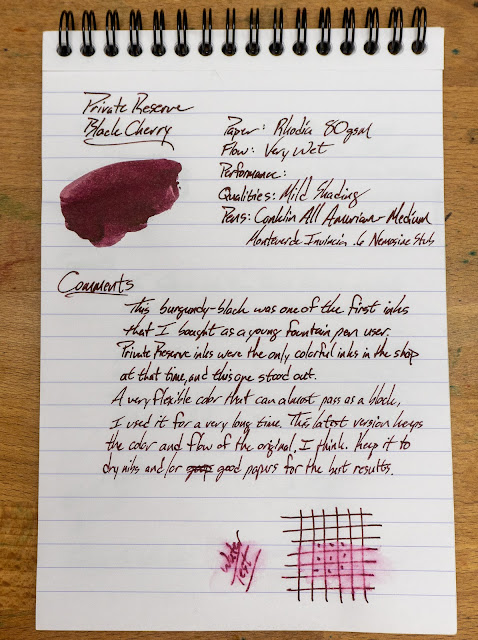 Private Reserve
Black Cherry
Paper: Rhodia 80gsm
Flow: Very Wet
Performance:
Qualities: Mild Shading
Pens: Conklin All American - Medium
Monteverde Invincia .6 Nemosine Stub
Comments
This burgundy-black was one of the first inks
that I bought as a young fountain pen user.
Private Reserve inks were the only colorful inks in the shop
at that time, and this one stood out.
A very flexible color that can almost pass as a black,
I used it for a very long time. This latest version keeps
the color and flow of the original, I think. Keep it to
dry nibs and/or good papers for the best results.
Water
Test